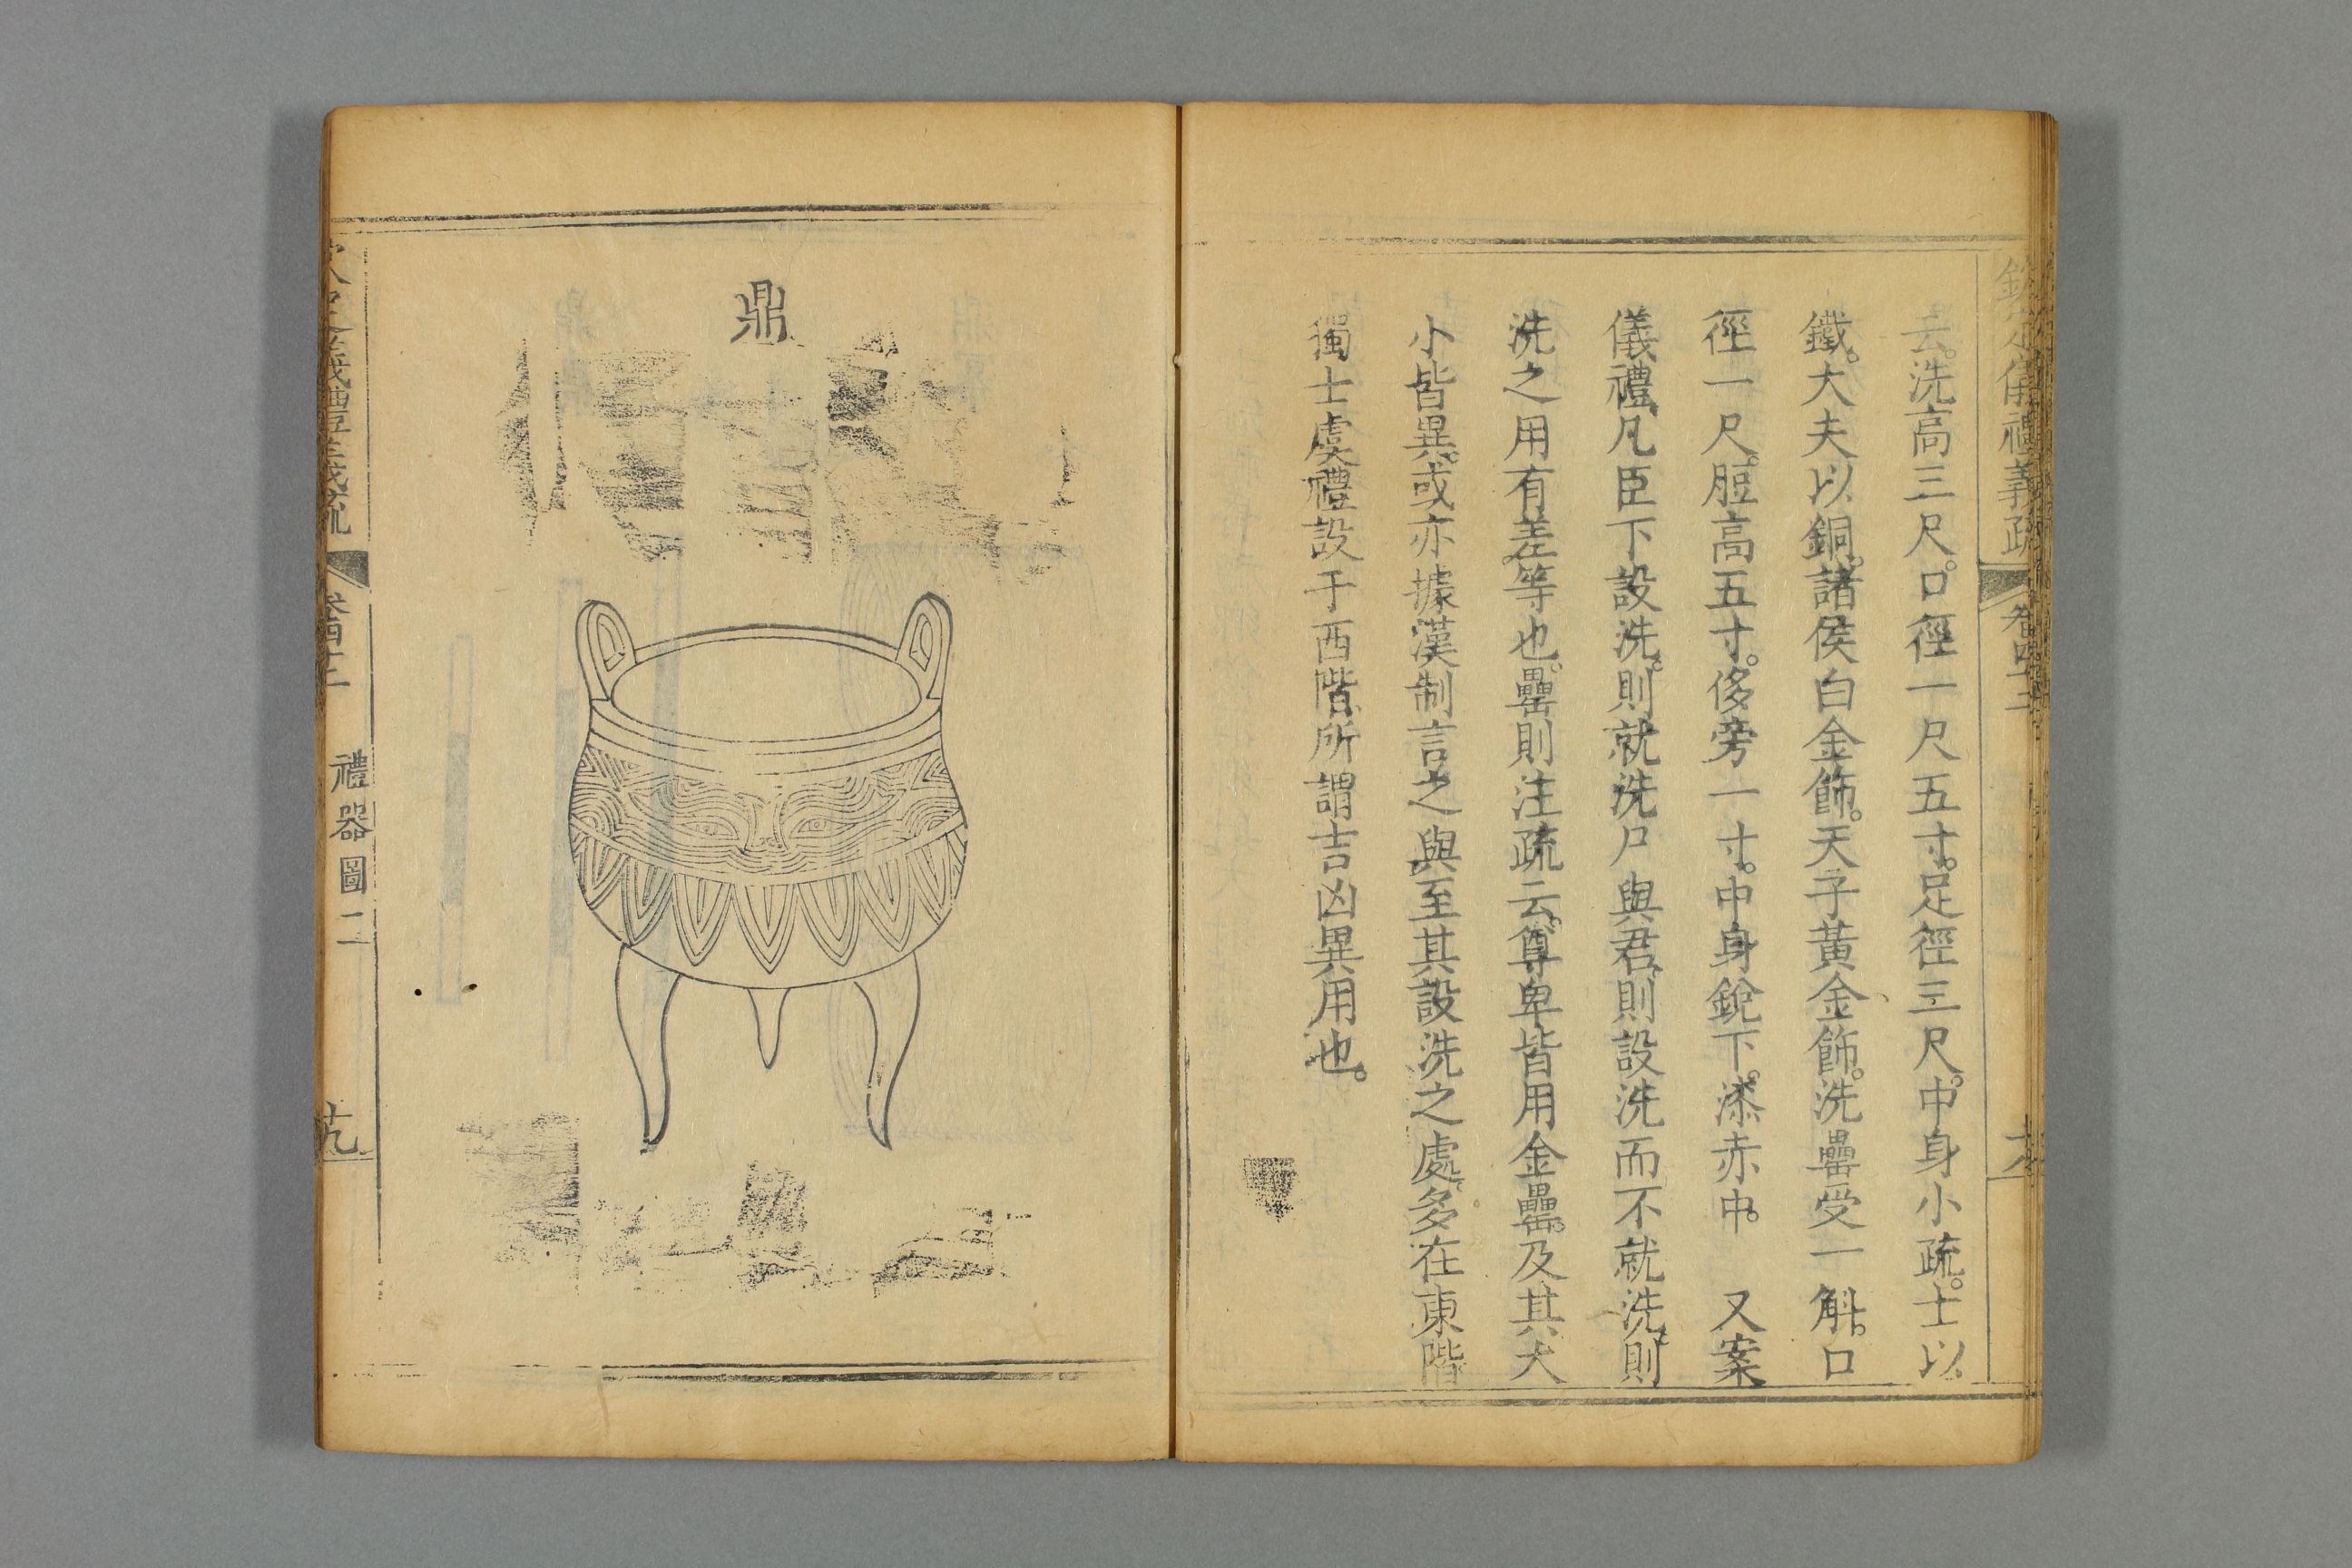 欽定儀禮義疏 卷四十三
云洗高三尺。口徑一尺五寸。足徑三尺。中身小疏。士以
鐵。大夫以銅。諸侯白金飾。天子黃金飾。洗罍受一斛。口
徑一尺。脰高五寸。侈旁一寸。中身銳下。漆赤中。 又案
儀禮。凡臣下設洗。則就洗。尸與君。則設洗而不就洗。則
洗之用有差等也。罍則注疏云。尊卑皆用金罍。及其大
小皆異。或亦據漢制言之與。至其設洗之處。多在東階
獨士虞禮設于西階。所謂吉凶異用也。
鼎
欽定儀禮義疏 卷四十三 禮器圖二 十九